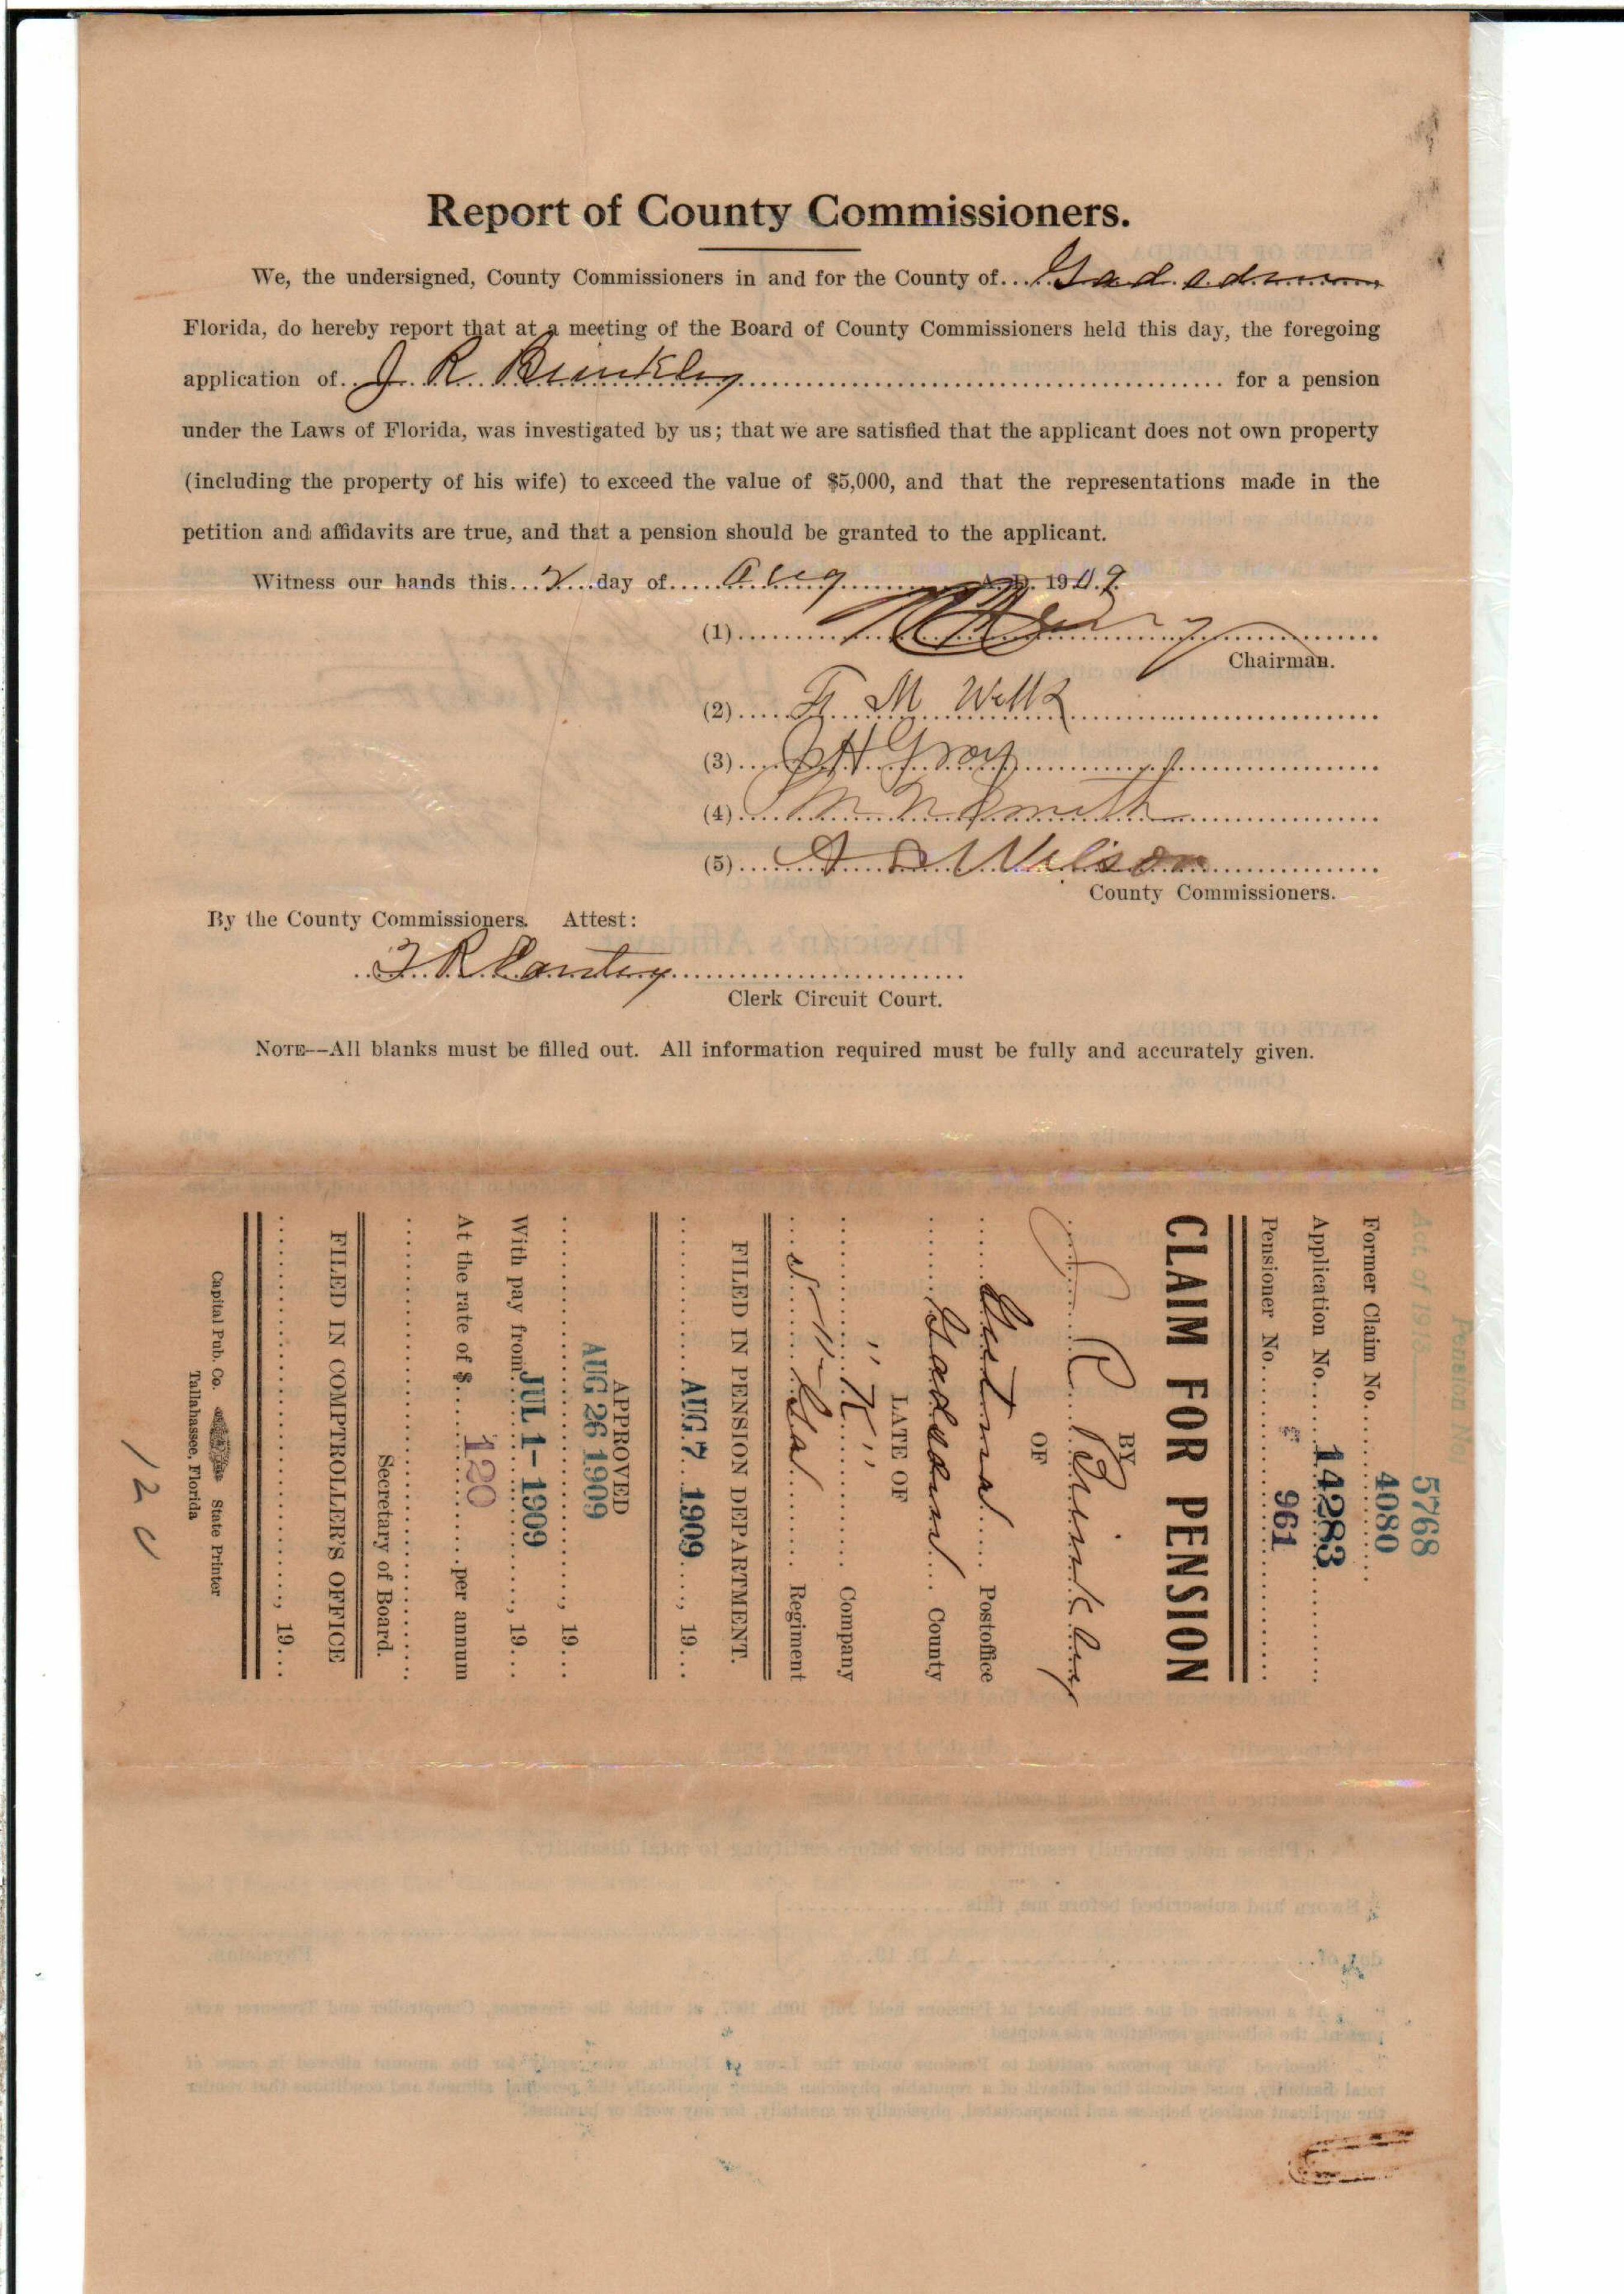 Report of County Commissioners.
We, the undersigned, County Commissioners in and for the County of... Gadsden
Florida, do hereby report that at a meeting of the Board of County Commissioners held this day, the foregoing
application of J. R. Brinkley for a pension
under the Laws of Florida, was investigated by us; that we are satisfied that the applicant does not own property
(including the property of his wife) to exceed the value of $5,000, and that the representations made in the
petition and affidavits are true, and that a pension should be granted to the applicant.
Witness our hands this... 2 ...day of.... Aug A. D. 1909.
(1)
Chairman.
(2) M Wells
(3) J H Gray
(4) M N Smith
(5) A D Wilson
County Commissioners.
By the County Commissioners. Attest:
Clerk Circuit Court.
NOTE--All blanks must be filled out. All information required must be fully and accurately given.
Pension No.
Act. of 1913. 5768
Former Claim No. 4080
Application No. 14283
Pensioner No. 961
CLAIM FOR PENSION
BY
J. R. Brinkley
OF
Gretna Postoffice
Gadsden County
LATE OF
"K" Company
5" Ga Regiment
FILED IN PENSION DEPARTMENT.
AUG 7 1909, 19...
APPROVED
AUG 26 1909
, 19...
With pay from JUL 1- 1909, 19...
At the rate of $ 120 per annum
Secretary of Board.
FILED IN COMPTROLLER'S OFFICE
, 19...
Capital Pub. Co. State Printer
Tallahassee, Florida
120